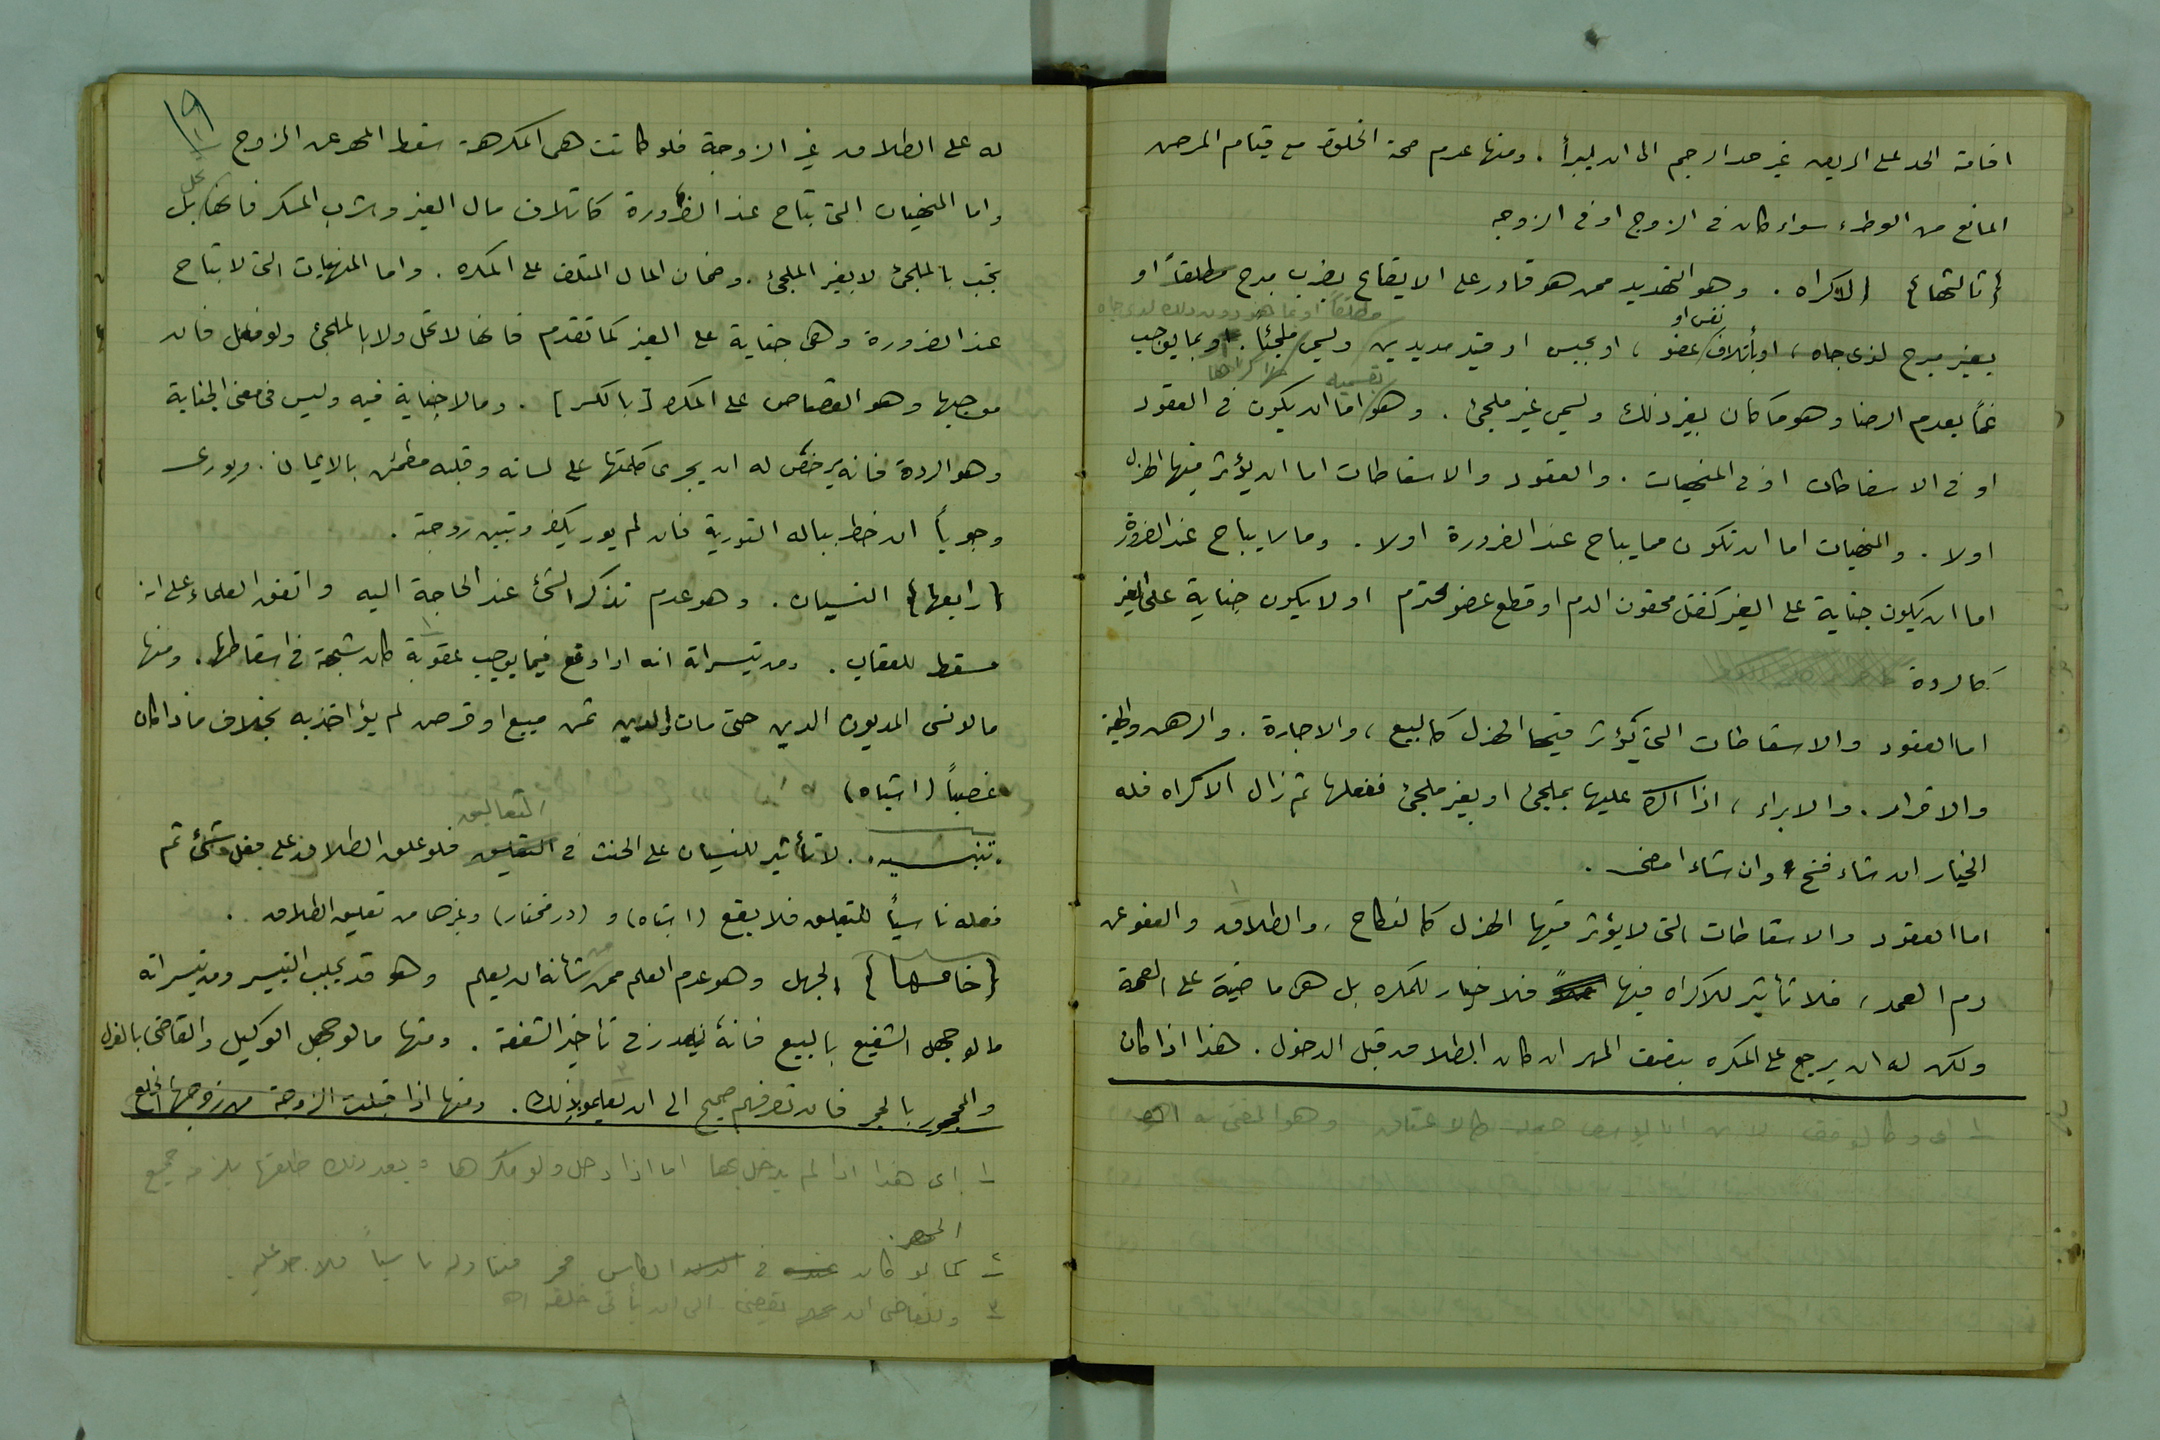 اقامة الحد على المريض غير حد الرجم الى ان يبرأ . ومنها عدم صحة الخلوة مع قيام المرض
المانع من الوطء سواء كان في الزوج او في الزوجه
{ثالثها} الاكراه . وهو التهديد ممن هو قادر على الايقاع بضرب مبرح مطلقاً او
بغير مبرح لذى جاه ، او بأتلاف نفس او عضو ، او بحبس او قيد مديدين وليس ملجئا . او بما يوجب
غماً يعدم الرضا وهو ما كان بغير ذلك وليس غير ملجئ . وهو اما ان يكون في العقود
او في الاسقاطات او في المنهيات . والعقود والاسقاطات اما ان يؤثر فيها الهزل
اولا . والمنهيات اما ان تكون مما يباح عند الضرورة اولا . وما لا يباح عند الضرورة
اما ان يكون جناية على الغير كقتل محقون الدم او قطع عضو محترم او لا يكون جناية على الغير
كالردة
اما العقود والاسقاطات التي يؤثر فيها الهزل كالبيع ، والاجارة . والرهن والهبة
والاقرار . والابراء ، اذا اكره عليها بملجئ او بغير ملجئ ففعلها ثم زال الاكراه فله
الخيار ان شاء فسخ وان شاء امضى .
اما العقود والاسقاطات التي لا يؤثر فيها الهزل كالنكاح ، والطلاق والعفو عن
دم العمد ، فلا تأثير للاكراه فيها فلا خيار للمكره بل هى ماضية على الصحة
ولكن له ان يرجع على المكره بنصف المهر ان كان الطلاق قبل الدخول . هذا اذا كان
١٩
له على الطلاق غير الزوجة فلو كانت هى المكرهة سقط المهر عن الزوج
واما المنهيات التي تباح عند الضرورة كاتلاف مال الغير وشرب المسكر فانها تحل بل
تجب بالملجئ لا بغير الملجئ . وضمان المال المتلف على المكره . واما المنهيات التى لا تباح
عند الضرورة وهى جناية على الغير كما تقدم فانها لا تحل ولا بالملجئ ولو فعل فان
موجبها وهو القصاص على المكره [بالكسر] . وما لا جناية فيه وليس فى معنى الجناية
وهو الردة فانه يرخص له ان يجرى كلمتها على لسانه وقلبه مطمئن بالايمان . ويورى
وجوباً ان خطر بباله التورية فان لم يور يكفر وتبين زوجته .
{رابعها} النسيان . وهو عدم تذكر الشئ عند الحاجة اليه واتفق العلماء على انه
مسقط للعقاب . ومن تيسيراته انه اذا وقع فيما يوجب عقوبة كان شبهة في اسقاطها . ومنها
ما لو نسى المديون الدين حتى مات والدين ثمن مبيع او قرض لم يؤاخذ به بخلاف ما اذا كان
غصباً (اشباه)
تنبيه . لا تأثير للنسيان على الحنث في التعاليق فلو علق الطلاق على فعل شئ ثم
فعله ناسياً للتعليق فلا يقع (اشباه) و (در مختار) وغيرها من تعليق الطلاق .
{خامسها} الجهل وهو عدم العلم ممن شأنه ان يعلم وهو قد يجلب التيسير ومن تيسيراته
ما لو جهل الشفيع بالبيع فانه يعذر في تأخير الشفعة . ومنها ما لو جهل الوكيل والقاضى بالعزل
والمحجور بالحجر فان تصرفهم صحيح الى ان يعلموا بذلك . ومنها اذا قبلت الزوجة من زوجها الخلع
١ اى هذا اذا لم يدخل بها اما اذا دخل ولو مكرها وبعد ذلك طلقها يلزمه جميع
المهر .
٢ كما لو كان في الكاس خمر فتناوله ناسياً فلا حد عليه .